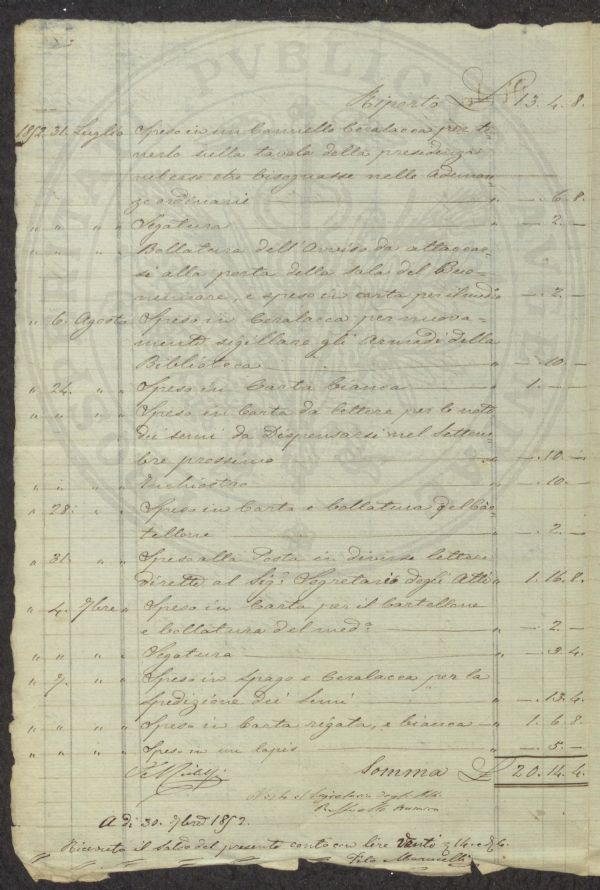 Riporto £ 13. 4. 8.
1852. 31. Luglio Spesa in un Cannello Ceralacca per te-
nerlo sulla tavola della presidenza
nel caso che bisognasse nelle Adunan-
ze ordinarie " — . 6. 8.
" " " " Segatura " — . 2. —
" " " " Bollatura dell'Avviso da attaccar-
si alla porta della sala del
e spesa in carta per il med° — . 2. —
" 6. Agosto Spesa in Ceralacca per nuova-
mente sigillare gli Armadi della
Biblioteca " — . 10. —
" 24. " " Spesa in Carta bianca " 1. — . —
" " " " Spesa in Carta da lettere per le note
dei semi da Dispensarsi nel Settem-
bre prossimo " — . 10. —
" " " " Inchiostro " — . 10. —
" 28. " " Spesa in Carta e bollatura del Car-
tellone " — . 2. —
" 31. " " Spesa alla Posta in diverse lettere
dirette al Sig: Segretario degli Atti " 1. 16. 8.
" 4. 7bre " Spesa in Carta per il Cartellone
e bollatura del med° " — . 2. —
" " " " Segatura " — . 3. 4.
" 7. " " Spesa in spago e Ceralacca per la
spedizione dei Semi " — . 13. 4.
" " " " Spesa in Carta rigata, e bianca " 1. 6. 8.
" " " " Spesa in un lapis " — . 5. —
Somma £ 20. 14. 4.
il Segretario degli Atti
A di 30. 7bre 1852.
Ricevuto il saldo del presente conto in lire Venti s. 14. e d. 4.